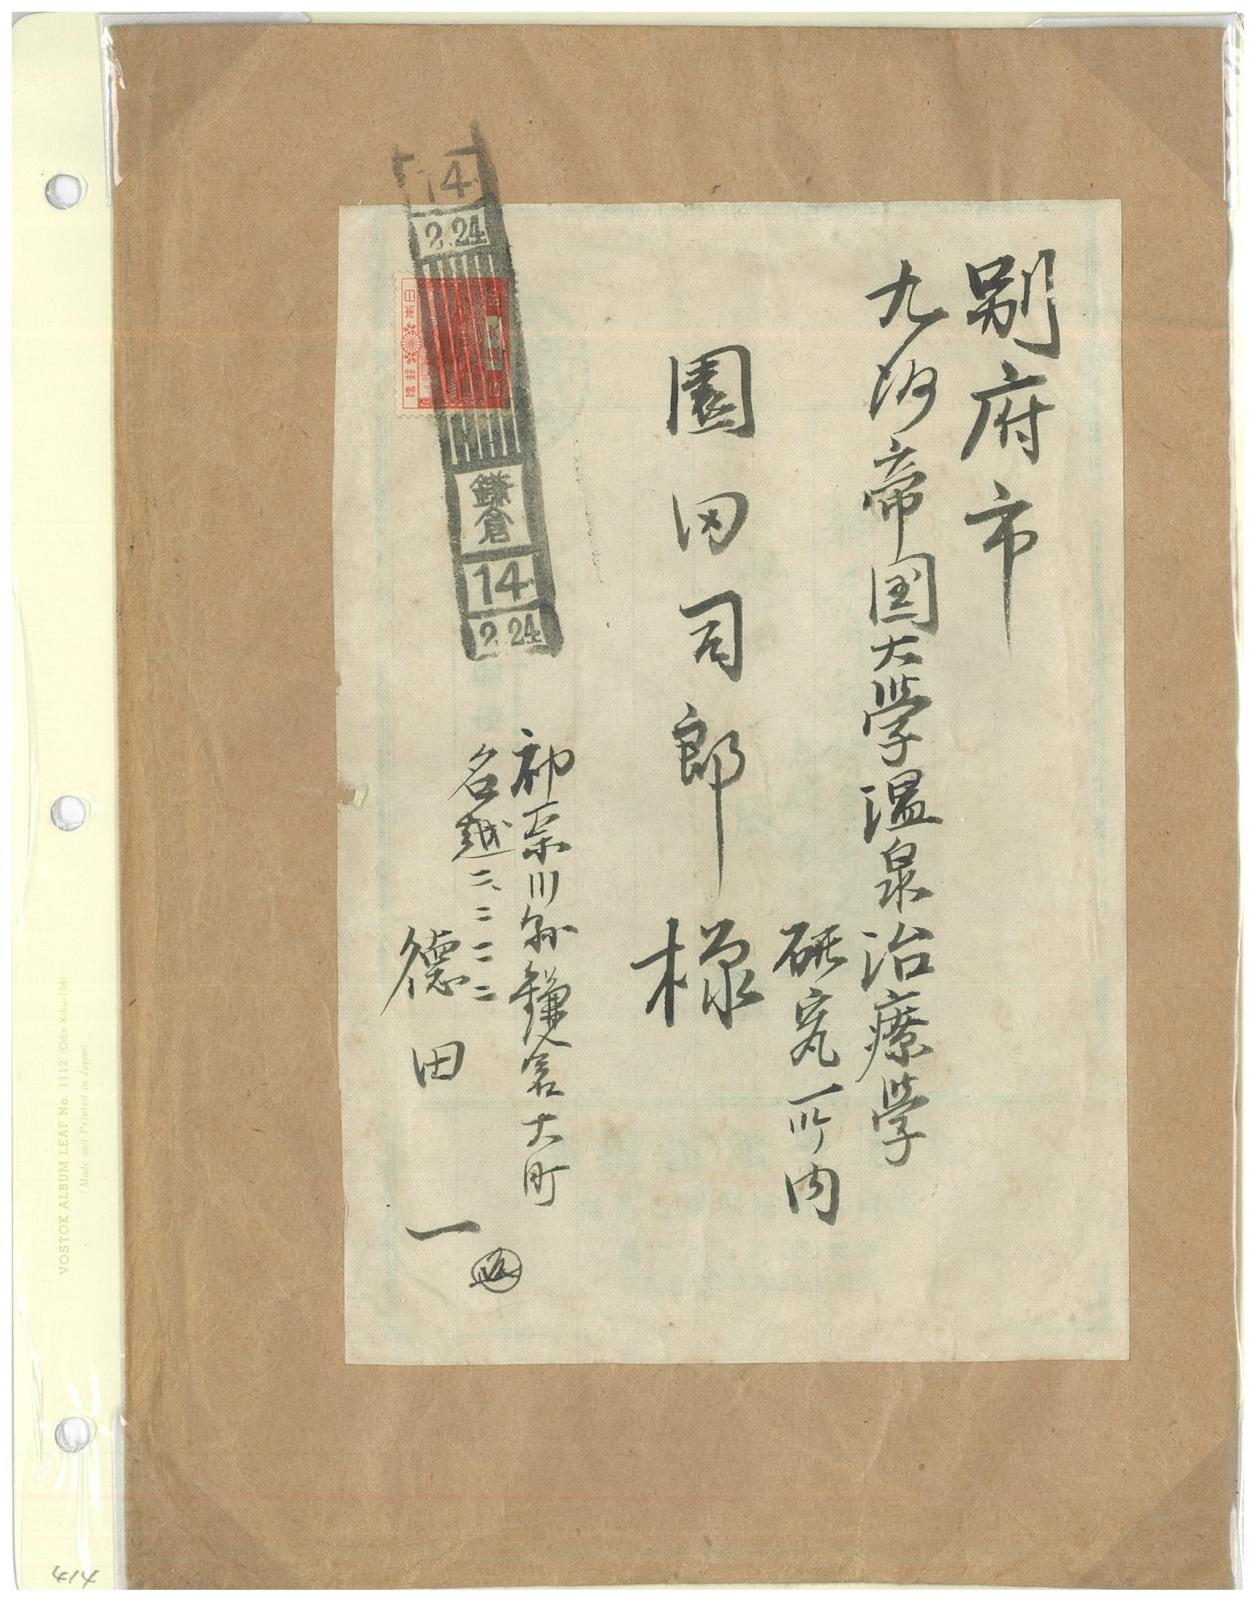 別府市
九州帝国大学温泉治療学
研究所内
園田司郎様
神奈川県鎌倉大町
名越二、二一二
徳田一
14.
2.24
鎌倉
14.
2.24
VOSTOK ALBUM LEAF No. 1112 (Odin Kiku-156)
Made and Printed in Japan